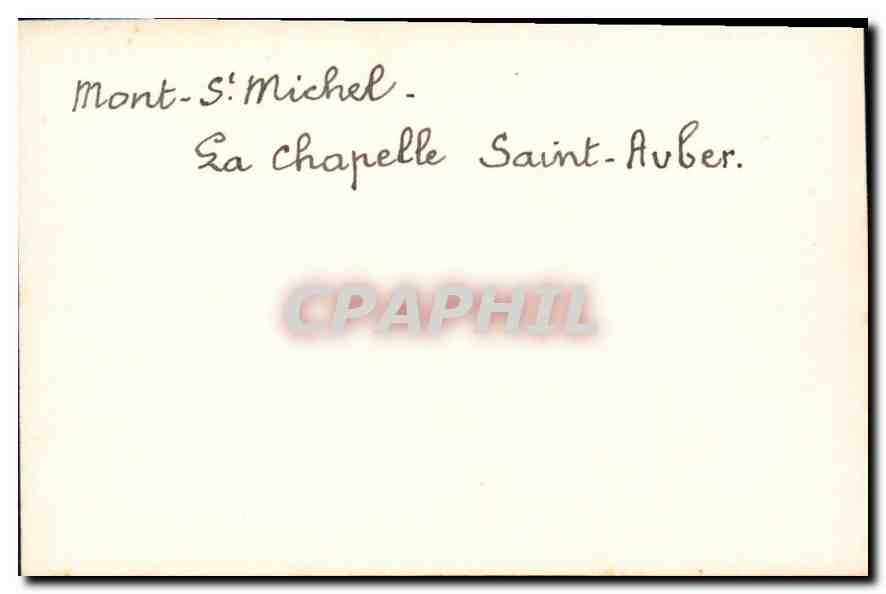 Mont-St. Michel.
La chapelle Saint-Auber.
CPAPHIL